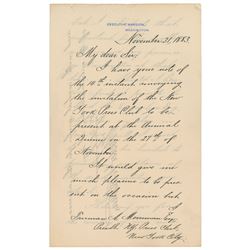 EXECUTIVE MANSION,
WASHINGTON.
November 21, 1883.
My dear Sir,
I have your note of
the 10th instant conveying
the invitation of the New
York Press Club to be
present at the Annual
Dinner on the 27th of
November.
It would give me
much pleasure to be pres-
ent on the occasion but
Truman A. Merriman Esq.
Presdt. N.Y. Press Club,
New York City.